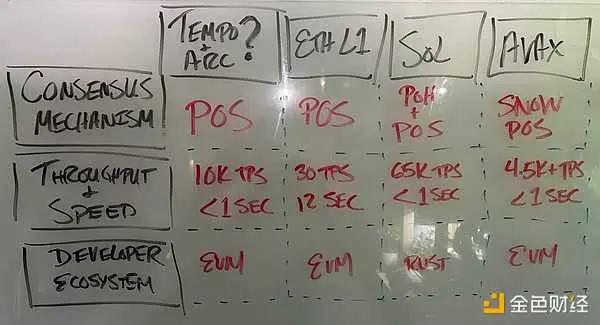 TEMPO + ARC ?
ETH L1
SOL
AVAX
CONSENSUS MECHANISM
POS
POS
POH + POS
SNOW POS
THROUGHPUT + SPEED
10K TPS <1 SEC
30 TPS 12 SEC
65K TPS <1 SEC
4.5K+ TPS <1 SEC
DEVELOPER ECOSYSTEM
EVM
EVM
RUST
EVM
金色财经